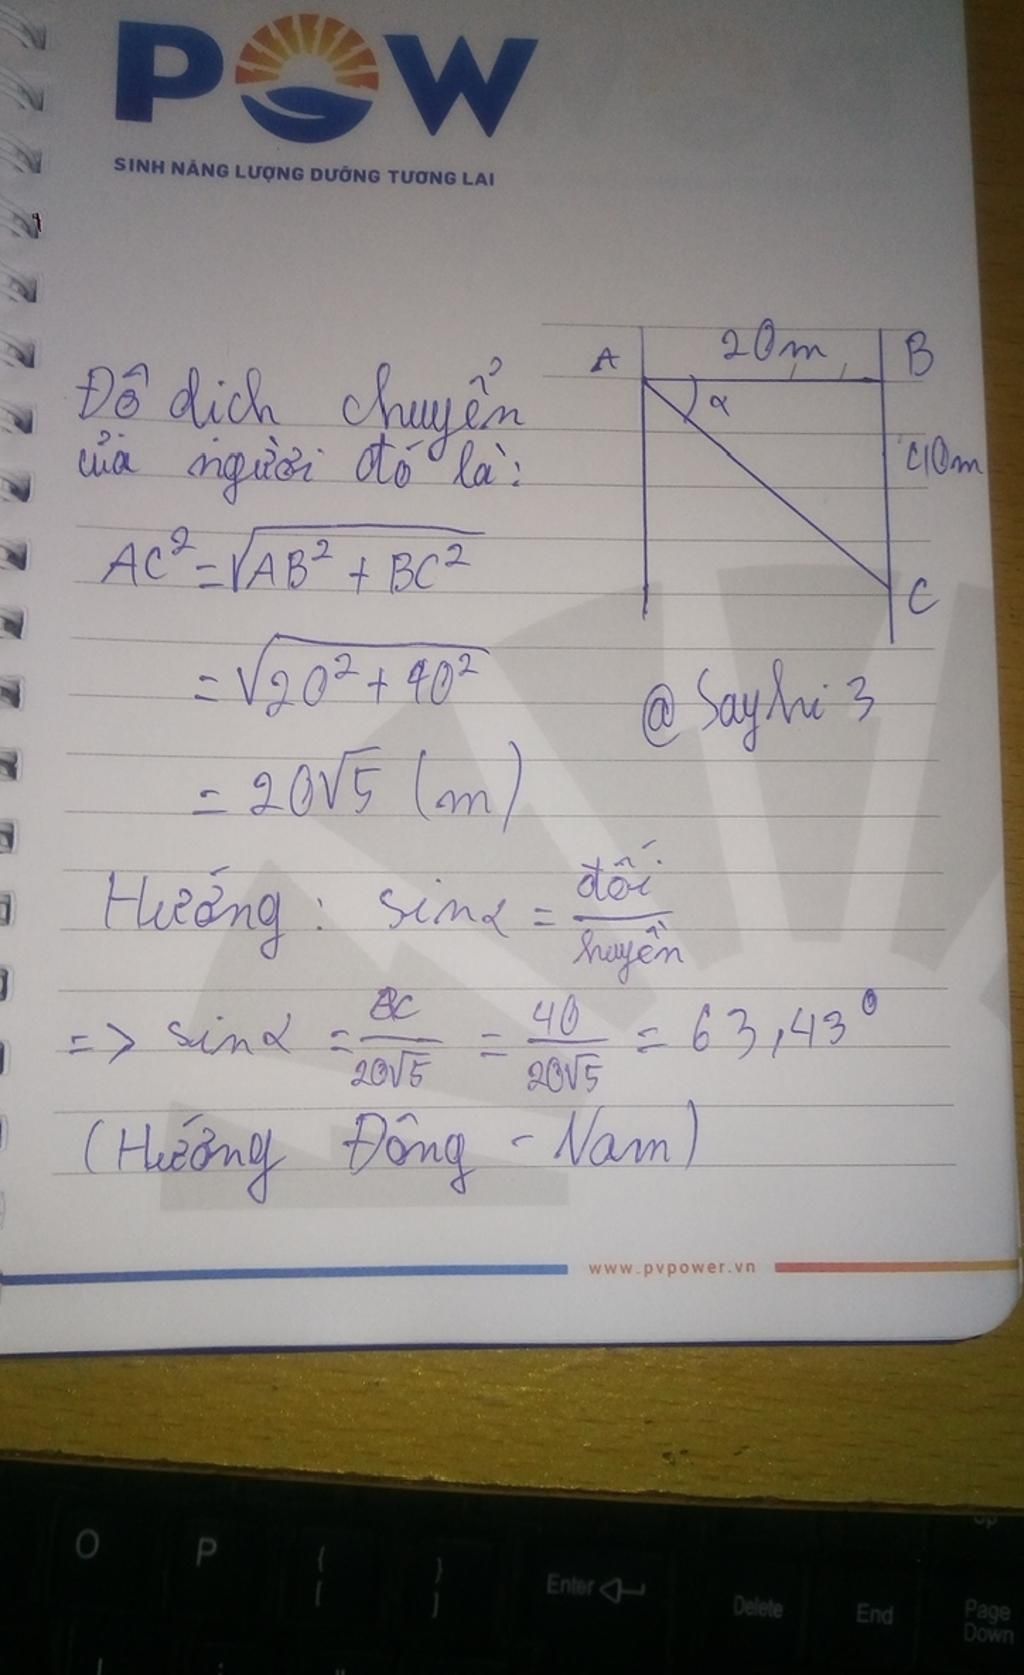 POW
SINH NĂNG LƯỢNG DƯỠNG TƯƠNG LAI
A 20m B
α
40m
C
Độ dịch chuyển
của người đó là:
AC² = √AB² + BC²
= √20² + 40²
@Sayhi 3
= 20√5 (m)
Hướng: sinα = đối/huyền
=> sinα = BC/20√5 = 40/20√5 = 63,43°
(Hướng Đông - Nam)
www.pvpower.vn
O P { [ } ] Enter Delete End Page Down